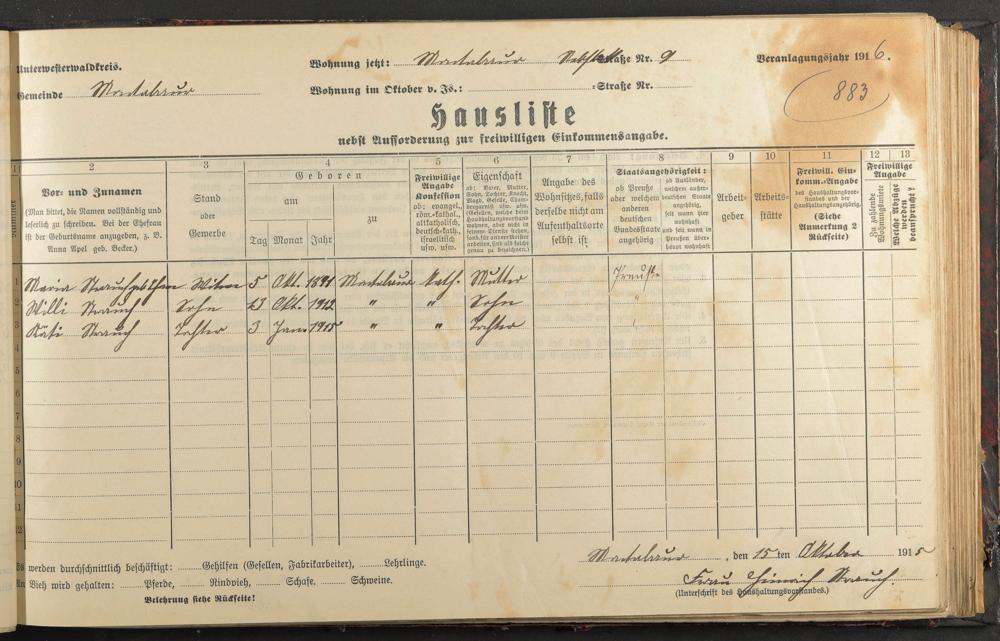 Unterwesterwaldkreis. Wohnung jetzt: Montabaur Straße Nr. 9 Veranlagungsjahr 1916.
Gemeinde Montabaur Wohnung im Oktober v. Js.: =Straße Nr. 883
Hausliste
nebst Aufforderung zur freiwilligen Einkommensangabe.
1 2 3 4 5 6 7 8 9 10 11 12 13
Nummer
Vor- und Zunamen
(Man bittet, die Namen vollständig und
leserlich zu schreiben. Bei der Ehefrau
ist der Geburtsname anzugeben, z. B.
Anna Apel geb. Becker.)
Stand
oder
Gewerbe
Geboren
am
zu
Tag Monat Jahr
Freiwillige
Angabe
Konfession
ob: evangel.,
röm.-kathol.,
altkatholisch,
deutsch-kath.,
israelitisch
usw. usw.
Eigenschaft
ob: Vater, Mutter,
Sohn, Tochter, Knecht,
Magd, Geselle, Cham-
bregarnist usw. usw.
(Gesellen, welche beim
Haushaltungsvorstand
wohnen, aber nicht in
seinem Dienste stehen,
sond. für andere Meister
arbeiten, sind als solche
genau zu bezeichnen.)
Angabe des
Wohnsitzes, falls
derselbe nicht am
Aufenthaltsorte
selbst ist
Staatsangehörigkeit:
ob Preuße
oder welchem
anderen
deutschen
Bundesstaate
angehörig
ob Ausländer,
welchem außer-
deutschen Staate
angehörig,
seit wann hier
wohnhaft
und seit wann in
Preußen über-
haupt wohnhaft
Arbeit-
geber
Arbeits-
stätte
Freiwill. Ein-
komm.-Angabe
des Haushaltungsvor-
standes und der
Haushaltungsangehörig.
(Siehe
Anmerkung 2
Rückseite)
Freiwillige
Angabe
Zu zahlende
Wohnungsmiete
Welche Abzüge
werden
beansprucht?
1 Maria Strauch Witwe 5 Okt. 1891 Montabaur kath. Mutter Preuße
2 Willi Strauch Sohn 23 Okt. 1912 " " Sohn "
3 Käti Strauch Tochter 3 Janu 1915 " " Tochter "
4
5
6
7
8
9
10
11
12
Es werden durchschnittlich beschäftigt: Gehilfen (Gesellen, Fabrikarbeiter), Lehrlinge. Montabaur, den 15ten Oktober 1915
An Vieh wird gehalten: Pferde, Rindvieh, Schafe. Schweine. Frau Heinrich Strauch.
Belehrung siehe Rückseite! (Unterschrift des Haushaltungsvorstandes.)